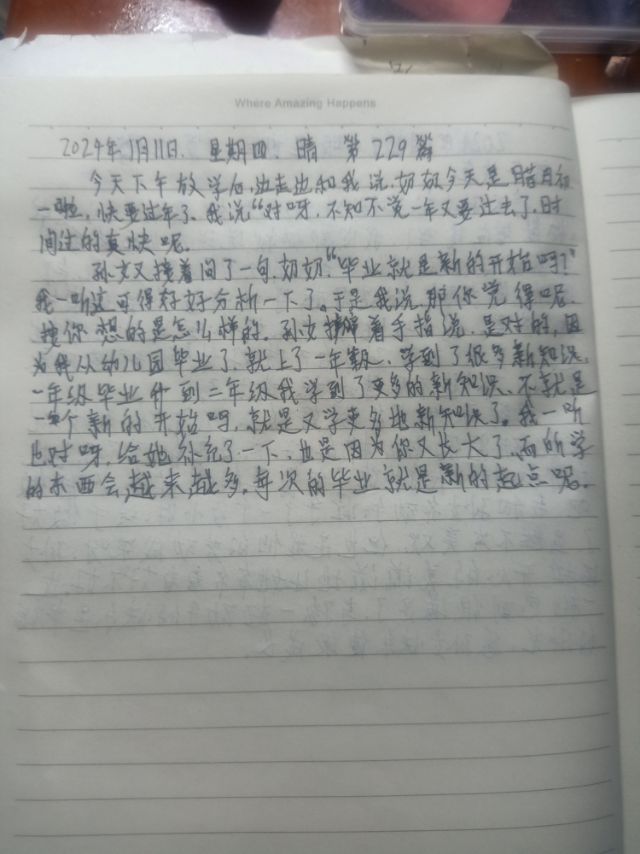 Where Amazing Happens
2024年1月11日. 星期四. 晴 第229篇
今天下午放学后,边走边和我说.奶奶今天是腊月初
一啦,快要过年了.我说“对呀,不知不觉一年又要过去了,时
间过的真快呢.
孙女又接着问了一句.奶奶.“毕业就是新的开始吗?”
我一听这可得好好分析一下了。于是我说.那你觉得呢.
按你想的是怎么样的.孙女掰着手指说.是对的,因
为我从幼儿园毕业了.就上了一年级.学到了很多新知识.
一年级毕业升到二年级我学到了更多的新知识.不就是
一个新的开始吗,就是又学更多地新知识了。我一听
也对呀,给她补充了一下.也是因为你又长大了.而所学
的东西会越来越多.每次的毕业就是新的起点呢.